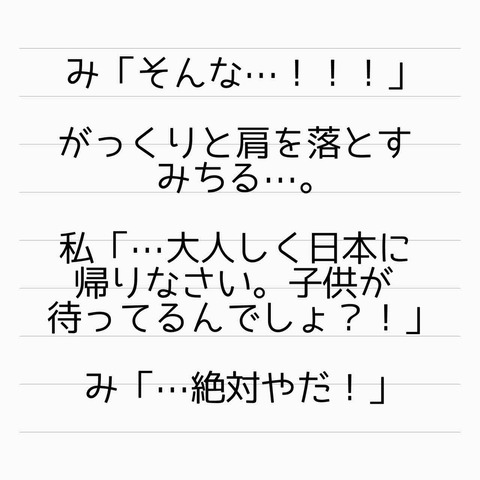 み「そんな…！！！」
がっくりと肩を落とす
みちる…。
私「…大人しく日本に
帰りなさい。子供が
待ってるんでしょ？！」
み「…絶対やだ！」